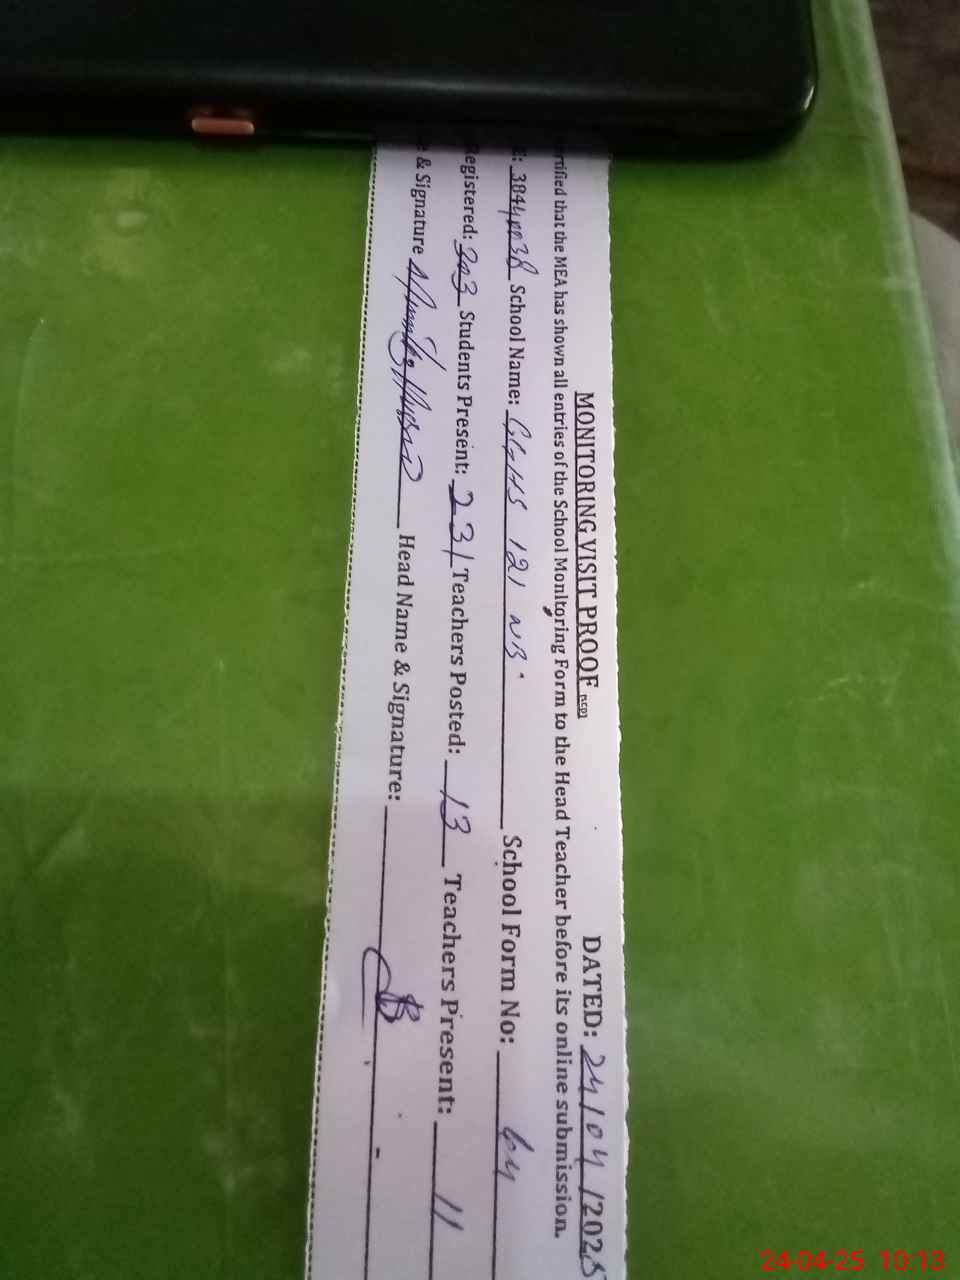 MONITORING VISIT PROOF DATED: 24/04/2025
ertified that the MEA has shown all entries of the School Monitoring Form to the Head Teacher before its online submission.
School Name: GGHS 121 NB School Form No: 64
egistered: 303 Students Present: 231 Teachers Posted: 13 Teachers Present: 11
e & Signature Head Name & Signature:
24-04-25 10:13